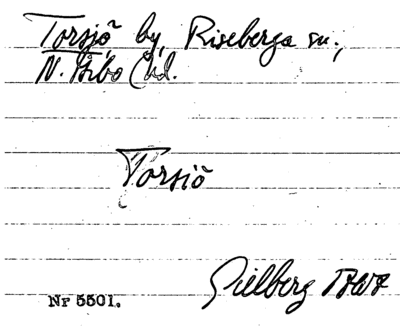 Torsjö by, Riseberga sn.,
N. Åsbo hd.
Torsiö
Gielberg
Nr 5501.